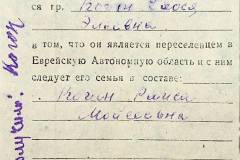 ся гр. Коган Хася
Элевна
в том, что он является переселенцем в
Еврейскую Автономную область и с ним
следует его семья в составе:
Коган Раиса
Мойсеевна
Коган